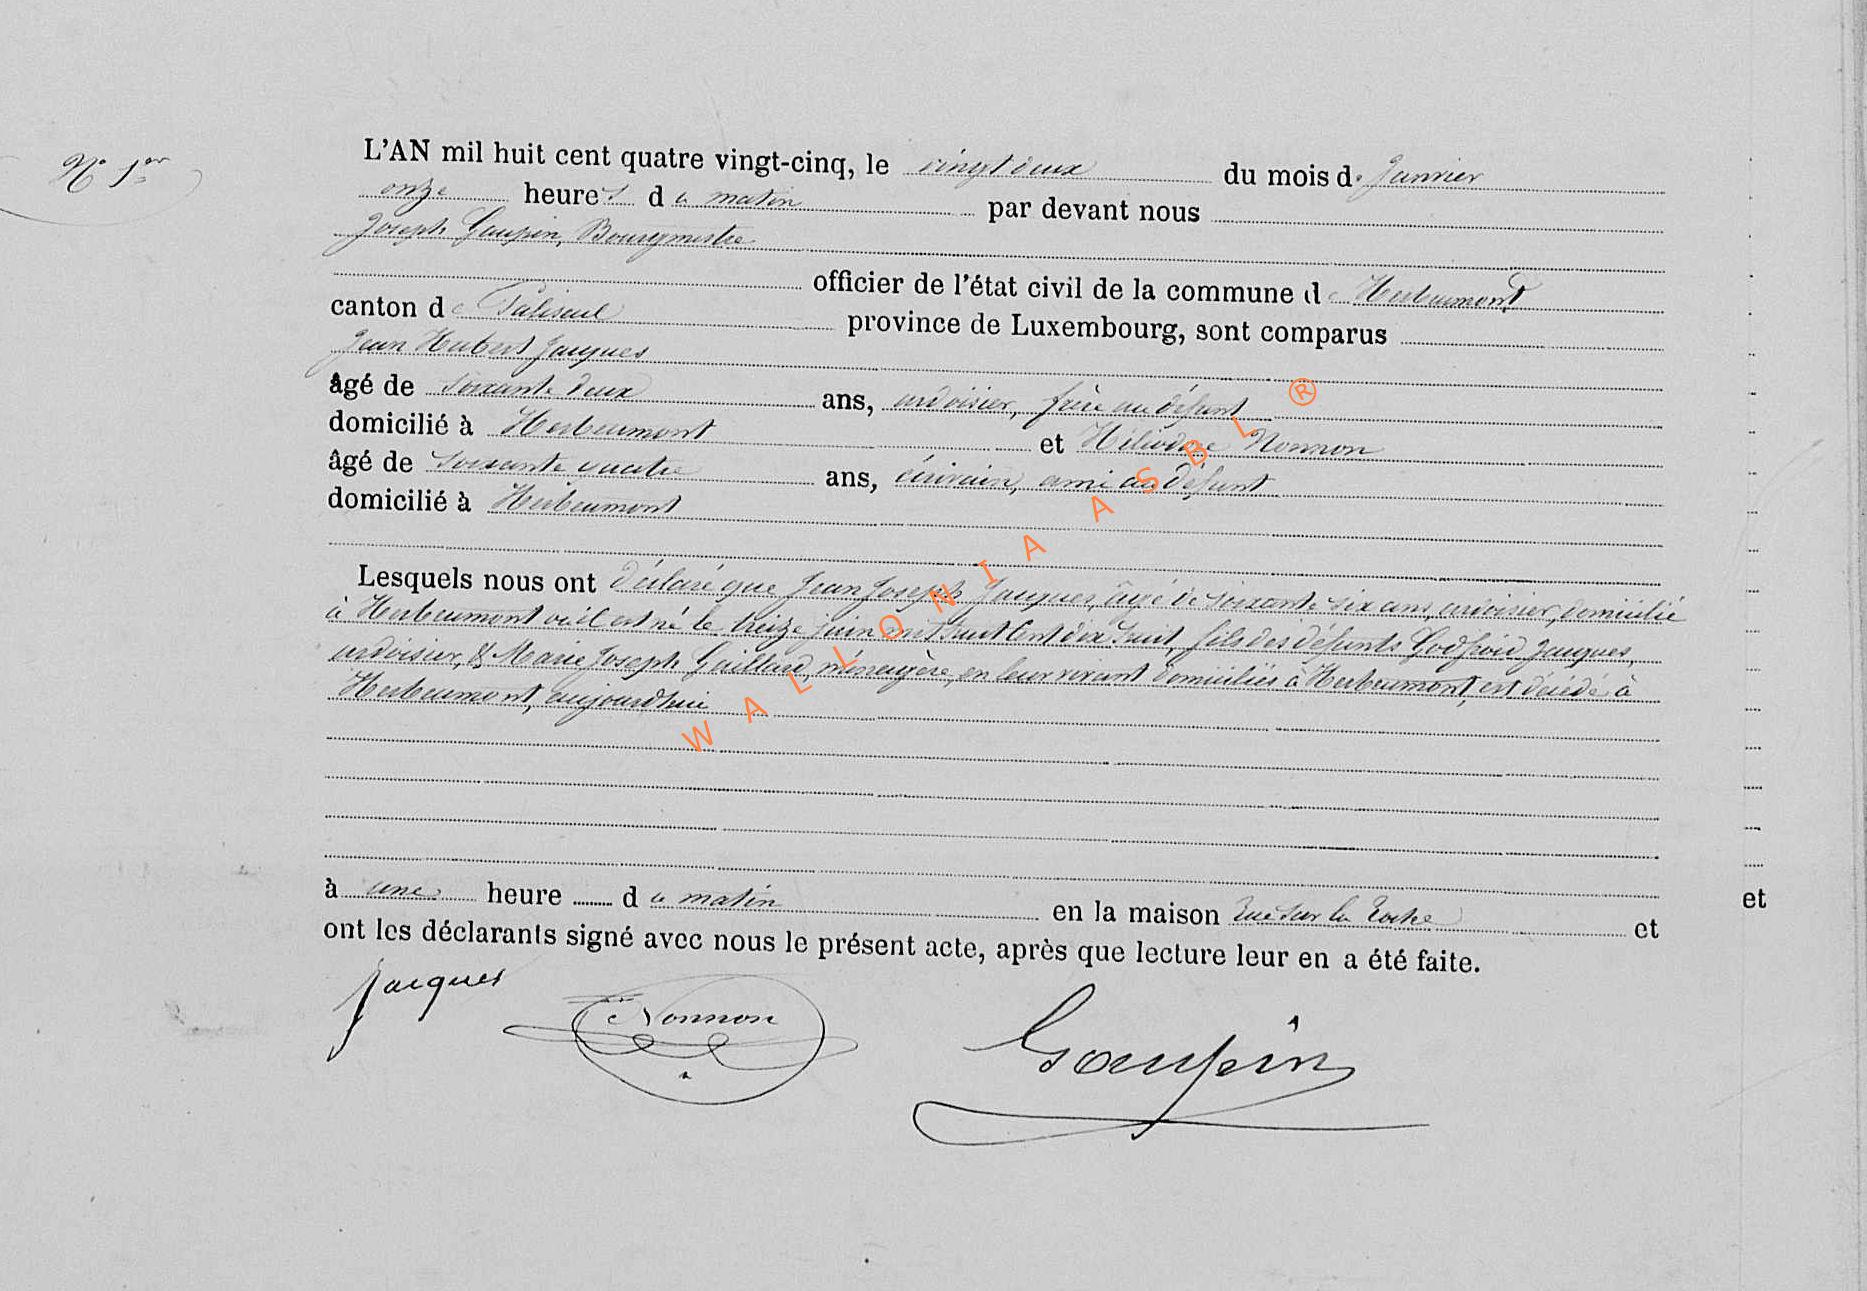 N° 1er
L'AN mil huit cent quatre vingt-cinq, le vingt deux du mois de Janvier
onze heures du matin par devant nous
Joseph Gaupin, Bourgmestre
officier de l'état civil de la commune de Herbeumont
canton de Paliseul province de Luxembourg, sont comparus
Jean Hubert Jacques
âgé de soixante deux ans, ardoisier, frère au défunt
domicilié à Herbeumont et Héliodore Nonnon
âgé de soixante quatre ans, écrivain, ami au défunt
domicilié à Herbeumont
Lesquels nous ont déclaré que Jean Joseph Jacques, âgé de soixante six ans, ardoisier, domicilié
à Herbeumont où il est né le treize juin mil huit cent dix huit, fils des défunts Godfroid Jacques,
ardoisier, & Marie Joseph Gaillard, ménagère, en leur vivant domiciliés à Herbeumont, est décédé à
Herbeumont, aujourdhui
à une heure du matin en la maison rue sur la Roche et
et
ont les déclarants signé avec nous le présent acte, après que lecture leur en a été faite.
Jacques
Nonnon
Gaupin
WALLONIA ASBL ®